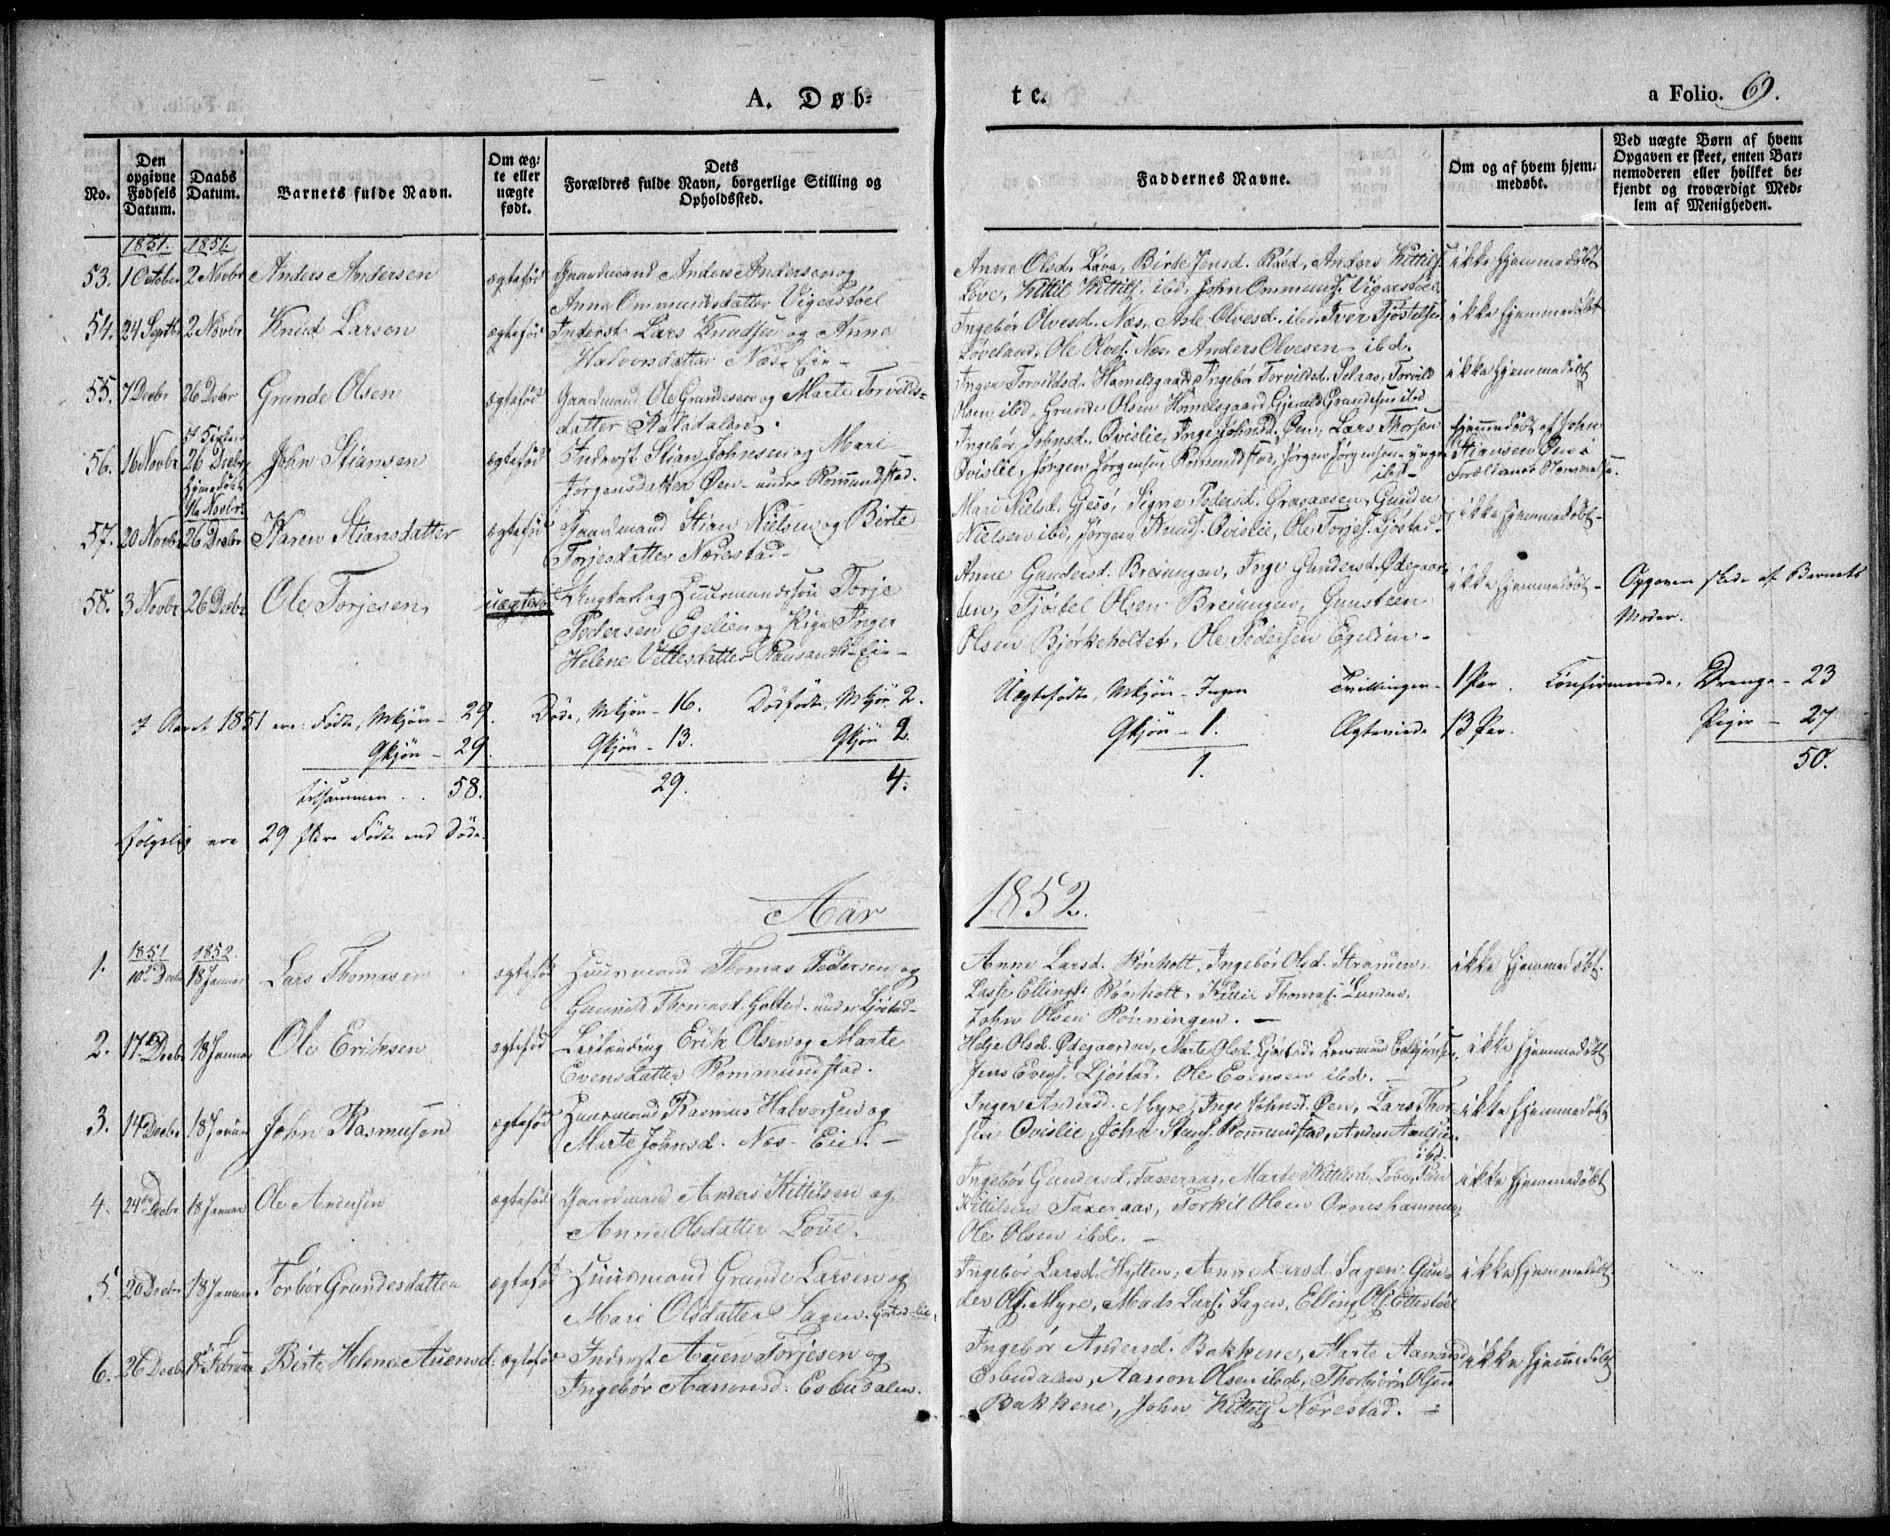 A. Døb-
te.
a Folio. 69.
No.
Den opgivne Fødsels Datum.
Daabs Datum.
Barnets fulde Navn.
Om æg-te eller uægte født.
Dets Forældres fulde Navn, borgerlige Stilling og Opholdssted.
Faddernes Navne.
Om og af hvem hjem-medøbt.
Ved uægte Børn af hvem Opgaven er skeet, enten Bar-nemoderen eller hvilket be-kjendt og troværdigt Med-lem af Menigheden.
1851. 1851.
53. 1 October 2 Novbr Anders Andersen ægtefød Gaardmand Anders Andersen og
Anna Ommundsdatter Vigerstøel
Anne Olsd. Løva, Birte Jensd. Røed, Anders Kittils.
Løve, Kittil Kittils. ibd, John Ommunds. Vigerstøel
ikke hjemmedøbt
54. 24 Septbr 2 Novbr Knud Larsen ægtefød Inderst Lars Knudsen og Anne
Halvorsdatter Næs-Eie-
Ingebor Olvesd. Næs, Asle Olvesd. ibd. Iver Tjøstelsen
Løveland, Ole Olves. Næs, Anders Olvesen ibd.
ikke hjemmedøbt
55. 7 Decbr 26 Decbr Grunde Olsen ægtefød Gaardmand Ole Grundesen og Marte Torvilds-
datter Kateldalen.
Inger Torvildsd. Hamelsgaard, Ingebør Torvildsd. Selaas, Torvild
Olsen ibd, Grunde Olsen Hamelsgaard, Gjeruld Grundesen ibd
ikke hjemmedøbt
56. 16 Novbr 26 Decbr John Stiansen ægtefød Inderst Stian Johnsen og Mari
hjemedøbt
Novbr
Jørgensdatter Øen - under Rommundstad.
Ingebør Johnsd. Qvislie, Inge Johnsd. Øen, Lars Thorsen
Qvislie, Jørgen Jørgensen Romundstad, Jørgen Jørgensen yngre
ibd-
hjemmedøbt af John
Stiansen Øen i
Forældrenes Nærværelse.
57. 20 Novbr 26 Decbr Karen Stiansdatter ægtefød Gaardmand Stian Nielsen og Birte
Torjesdatter Nærestad-
Mari Nielsd. Gjesø, Signe Pedersd. Graaaasen, Gunder
Nielsen ibd, Jørgen Knuds. Qvislie, Ole Torjes. Ljøstad-
ikke hjemmedøbt-
58. 3 Novbr 26 Decbr Ole Torjesen, uægtefød Ungkarl og Huusmandssøn Torje
Pedersen Egelien og Pige Inger
Helene Vettesdatter Ramsands-Eie-
Anne Gundersd. Breiungen, Inge Gundersd. Ødegaar-
den, Tjøstel Olsen Breiungen, Gunsteen
Olsen Bjørkeholtet, Ole Pedersen Egelien-
ikke hjemmedøbt-
Opgaven skede af Barnets
Moder.
I Aaret 1851 ere: Fødte, Mkjøn - 29. Døde, Mkjøn - 16. Dødfødte, Mkjøn 2.
Qkjøn - 29. Qkjøn - 13. Qkjøn 2.
tilsammen . . 58. 29. 4.
følgelig ere 29 flere Fødte end Døde.
Uægtefødte, Mkjøn - Ingen Tvillinger - 1 Par. Confirmerede, Drenge - 23
Qkjøn - 1. Ægteviede 13 Par. Piger - 27
1. 50.
Aar 1852.
1851 1852
1. 10de Decbr 18 Januar Lars Thomasen ægtefød Huusmand Thomas Pedersen og
Gunnild Thomasd. Holten under Ljøstad-
Anne Larsd. Rønholt, Ingebør Olsd. Strømen,
Lasse Ellings. Rønholt, Kittil Thomas. Lunden,
John Olsen Rønningen. -
ikke hjemmedøbt.
2. 17de Decbr 18 Januar Ole Eriksen ægtefød Leilending Erik Olsen og Marte
Evensdatter Rommundstad.
Helje Olsd. Ødegaarden, Marte Olsd. Ljøstad,
Jens Evens. Ljøstad, Ole Evensen ibd. -
ikke hjemmedøbt
3. 14 Decbr 18 Januar John Rasmusen ægtefød Huusmand Rasmus Halvorsen og
Marte Johnsd. Næs-Eie. -
Inger Andersd. Myre, Inge Johnsd. Øen, Lars Thor-
sen Qvislie, John Romundstad, Anders
ibd.
ikke hjemmedøbt
4. 24de Decbr 18 Januar Ole Andersen ægtefød Gaardmand Anders Kittilsen og
Anne Olsdatter Løve.
Ingebør Gundersd. Taxeraas, Marte Kittilsd. Løve,
Kittilsen Taxeraas, Torkil Olsen Ormshammer,
Ole Olsen ibd. -
ikke hjemmedøbt
5. 20 Decbr 18 Januar Torbør Grundesdatter ægtefød Huusmand Grunde Larsen og
Mari Olsdatter Sagen, Ljøstad-Eie.
Ingebør Larsd. Hytten, Anne Larsd. Sagen, Gun-
der Ols. Myre, Mads Lars. Sagen, Elling Ols. Ettestøel
ikke hjemmedøbt
6. 26 Decbr 8 Februar Birte Helene Auensd. ægtefød Inderst Auen Torjesen og
Ingebør Aanonsd. Esbudalen.
Ingebør Andersd. Bakkene, Marte Aanonsd.
Esbudalen, Aanon Olsen ibd, Thorbjørn Olsen
Bakkene, John Kittils. Nærestad. -
ikke hjemmedøbt